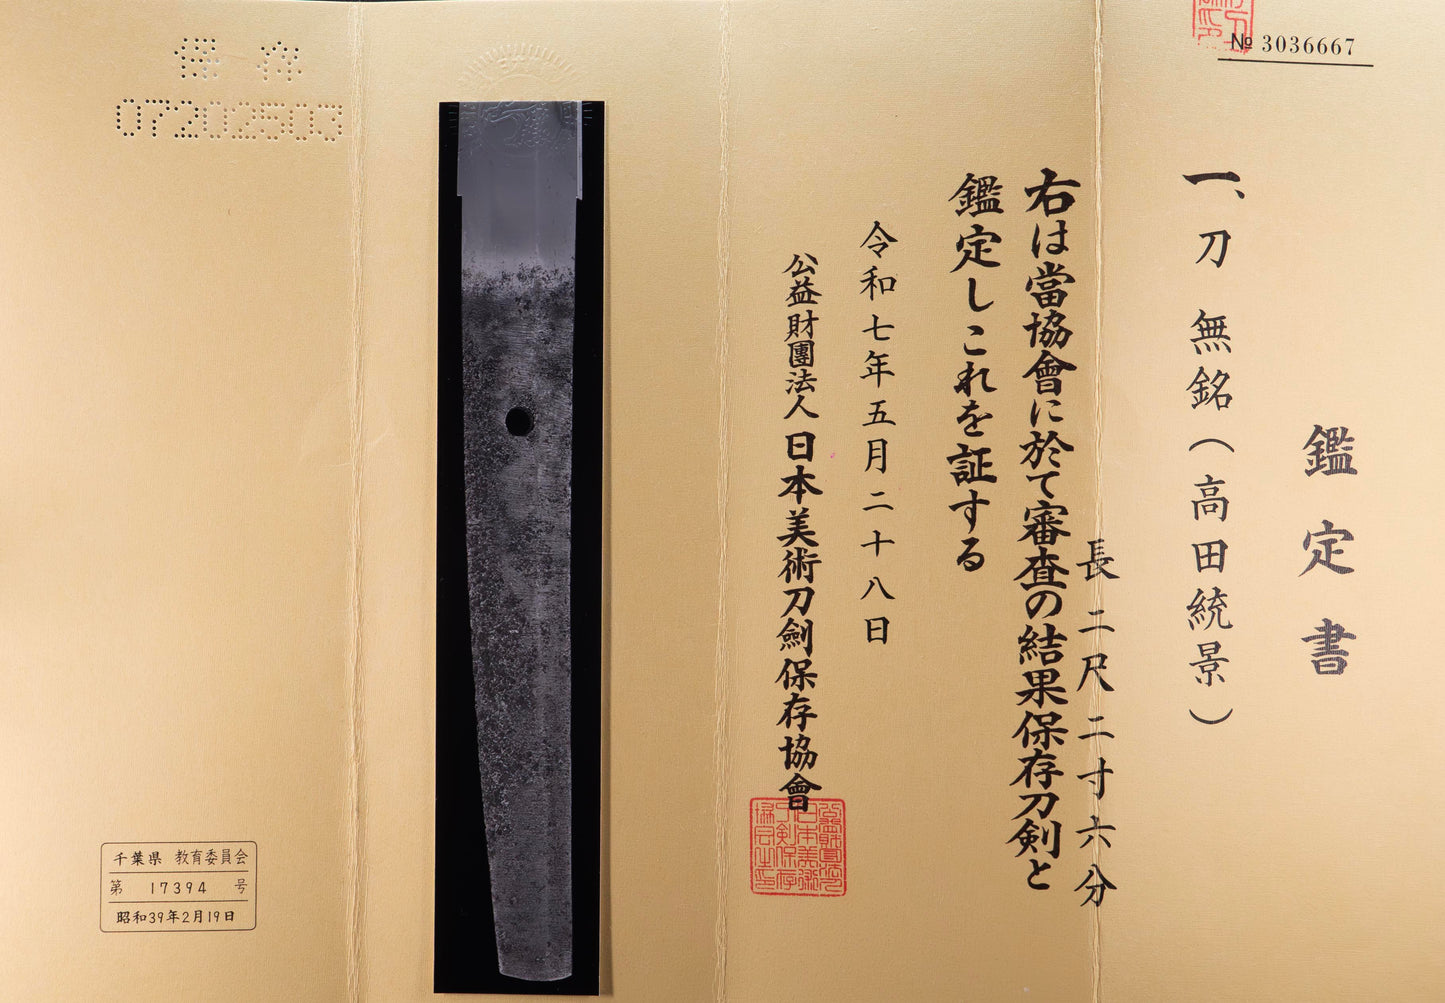 № 3036667
鑑定書
一、刀 無銘(高田統景)
長 二尺二寸六分
右は當協會に於て審査の結果保存刀剣と
鑑定しこれを証する
令和七年五月二十八日
公益財團法人 日本美術刀劍保存協會
保存
07202503
千葉県 教育委員会
第 17394 号
昭和39年2月19日